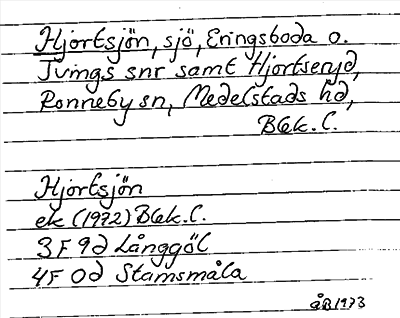 Hjortsjön, sjö, Eringsboda o.
Tvings snr samt Hjortseryd,
Ronneby sn, Medelstads hd,
Blek. l.
Hjortsjön
ek (1972) Blek. l.
3F 9d Långgöl
4F 0d Stamsmåla
åB 1973